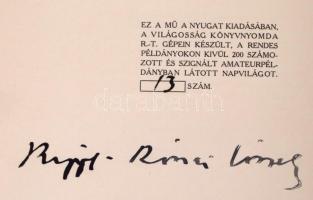 EZ A MŰ A NYUGAT KIADÁSÁBAN,
A VILÁGOSSÁG KÖNYVNYOMDA
R.-T. GÉPEIN KÉSZÜLT, A RENDES
PÉLDÁNYOKON KIVÜL 200 SZÁMO-
ZOTT ÉS SZIGNÁLT AMATEURPÉL-
DÁNYBAN LÁTOTT NAPVILÁGOT.
13 SZÁM.
darabanth
Rippl-Rónai József